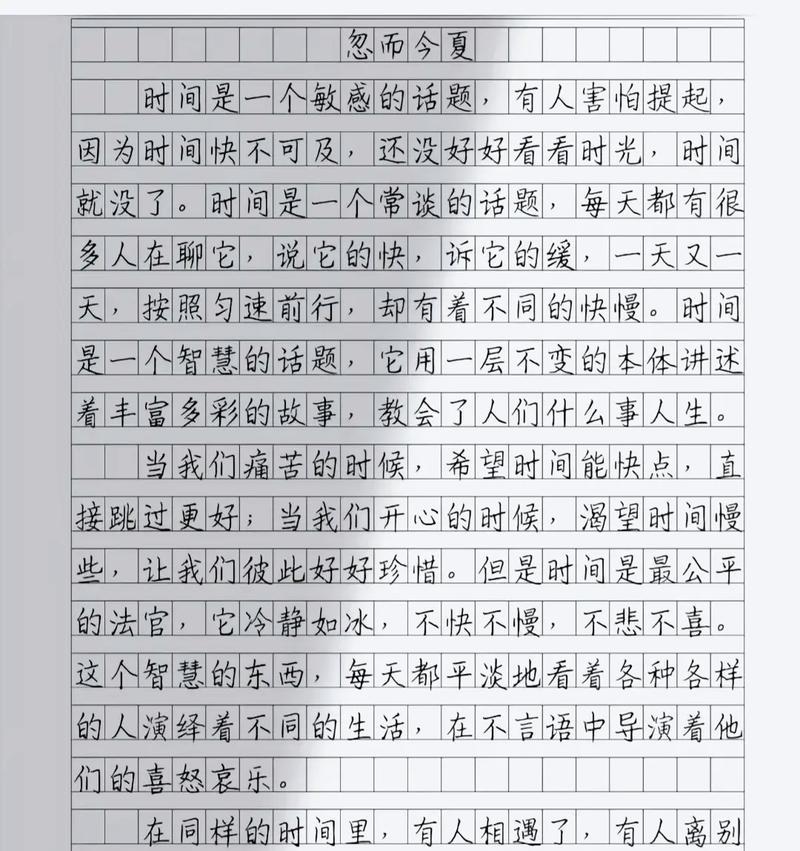 忽而今夏
时间是一个敏感的话题，有人害怕提起，
因为时间快不可及，还没好好看看时光，时间
就没了。时间是一个常谈的话题，每天都有很
多人在聊它，说它的快，诉它的缓，一天又一
天，按照匀速前行，却有着不同的快慢。时间
是一个智慧的话题，它用一层不变的本体讲述
着丰富多彩的故事，教会了人们什么事人生。
当我们痛苦的时候，希望时间能快点，直
接跳过更好；当我们开心的时候，渴望时间慢
些，让我们彼此好好珍惜。但是时间是最公平
的法官，它冷静如冰，不快不慢，不悲不喜。
这个智慧的东西，每天都平淡地看着各种各样
的人演绎着不同的生活，在不言语中导演着他
们的喜怒哀乐。
在同样的时间里，有人相遇了，有人离别